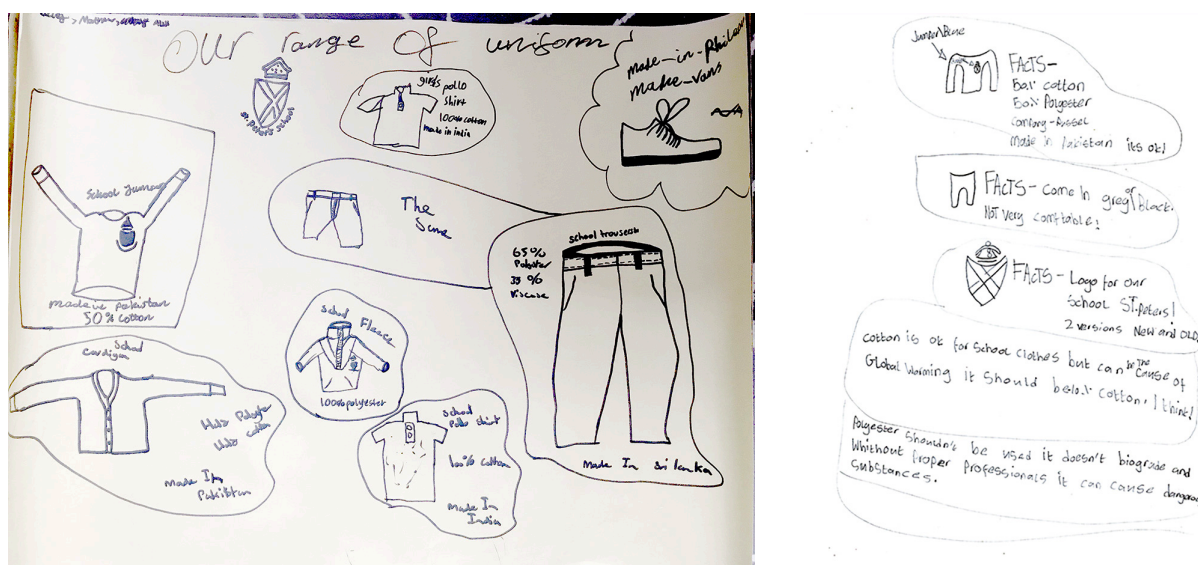 Our range of uniform
St. Peter's school
girls pollo
shirt
100% cotton
made in india
made-in-
make-vans
School Jumper
made in pakistan
50% cotton
The
Same
school trousers
65%
Polyster
35%
Viscose
Made In Sri lanka
School Fleece
100% polyester
School
Cardigan
cotton
made In
Pakistan
School
Pollo Shirt
100% cotton
made In
India
Jumper/Blue
FACTS-
cotton
Polyester
Company-Russel
Made in Pakistan its ok!
FACTS - Come In grey/Black.
Not very comftable!
FACTS - Logo for our
School ST.Peters!
2 versions New and OLD
Cotton is ok for School clothes but can be The Cause of
Global Warming it Should cotton, I think!
Polyester shouldn't be used it doesn't biograde and
Whithout Proper Professionals it can cause dangerou
substances.